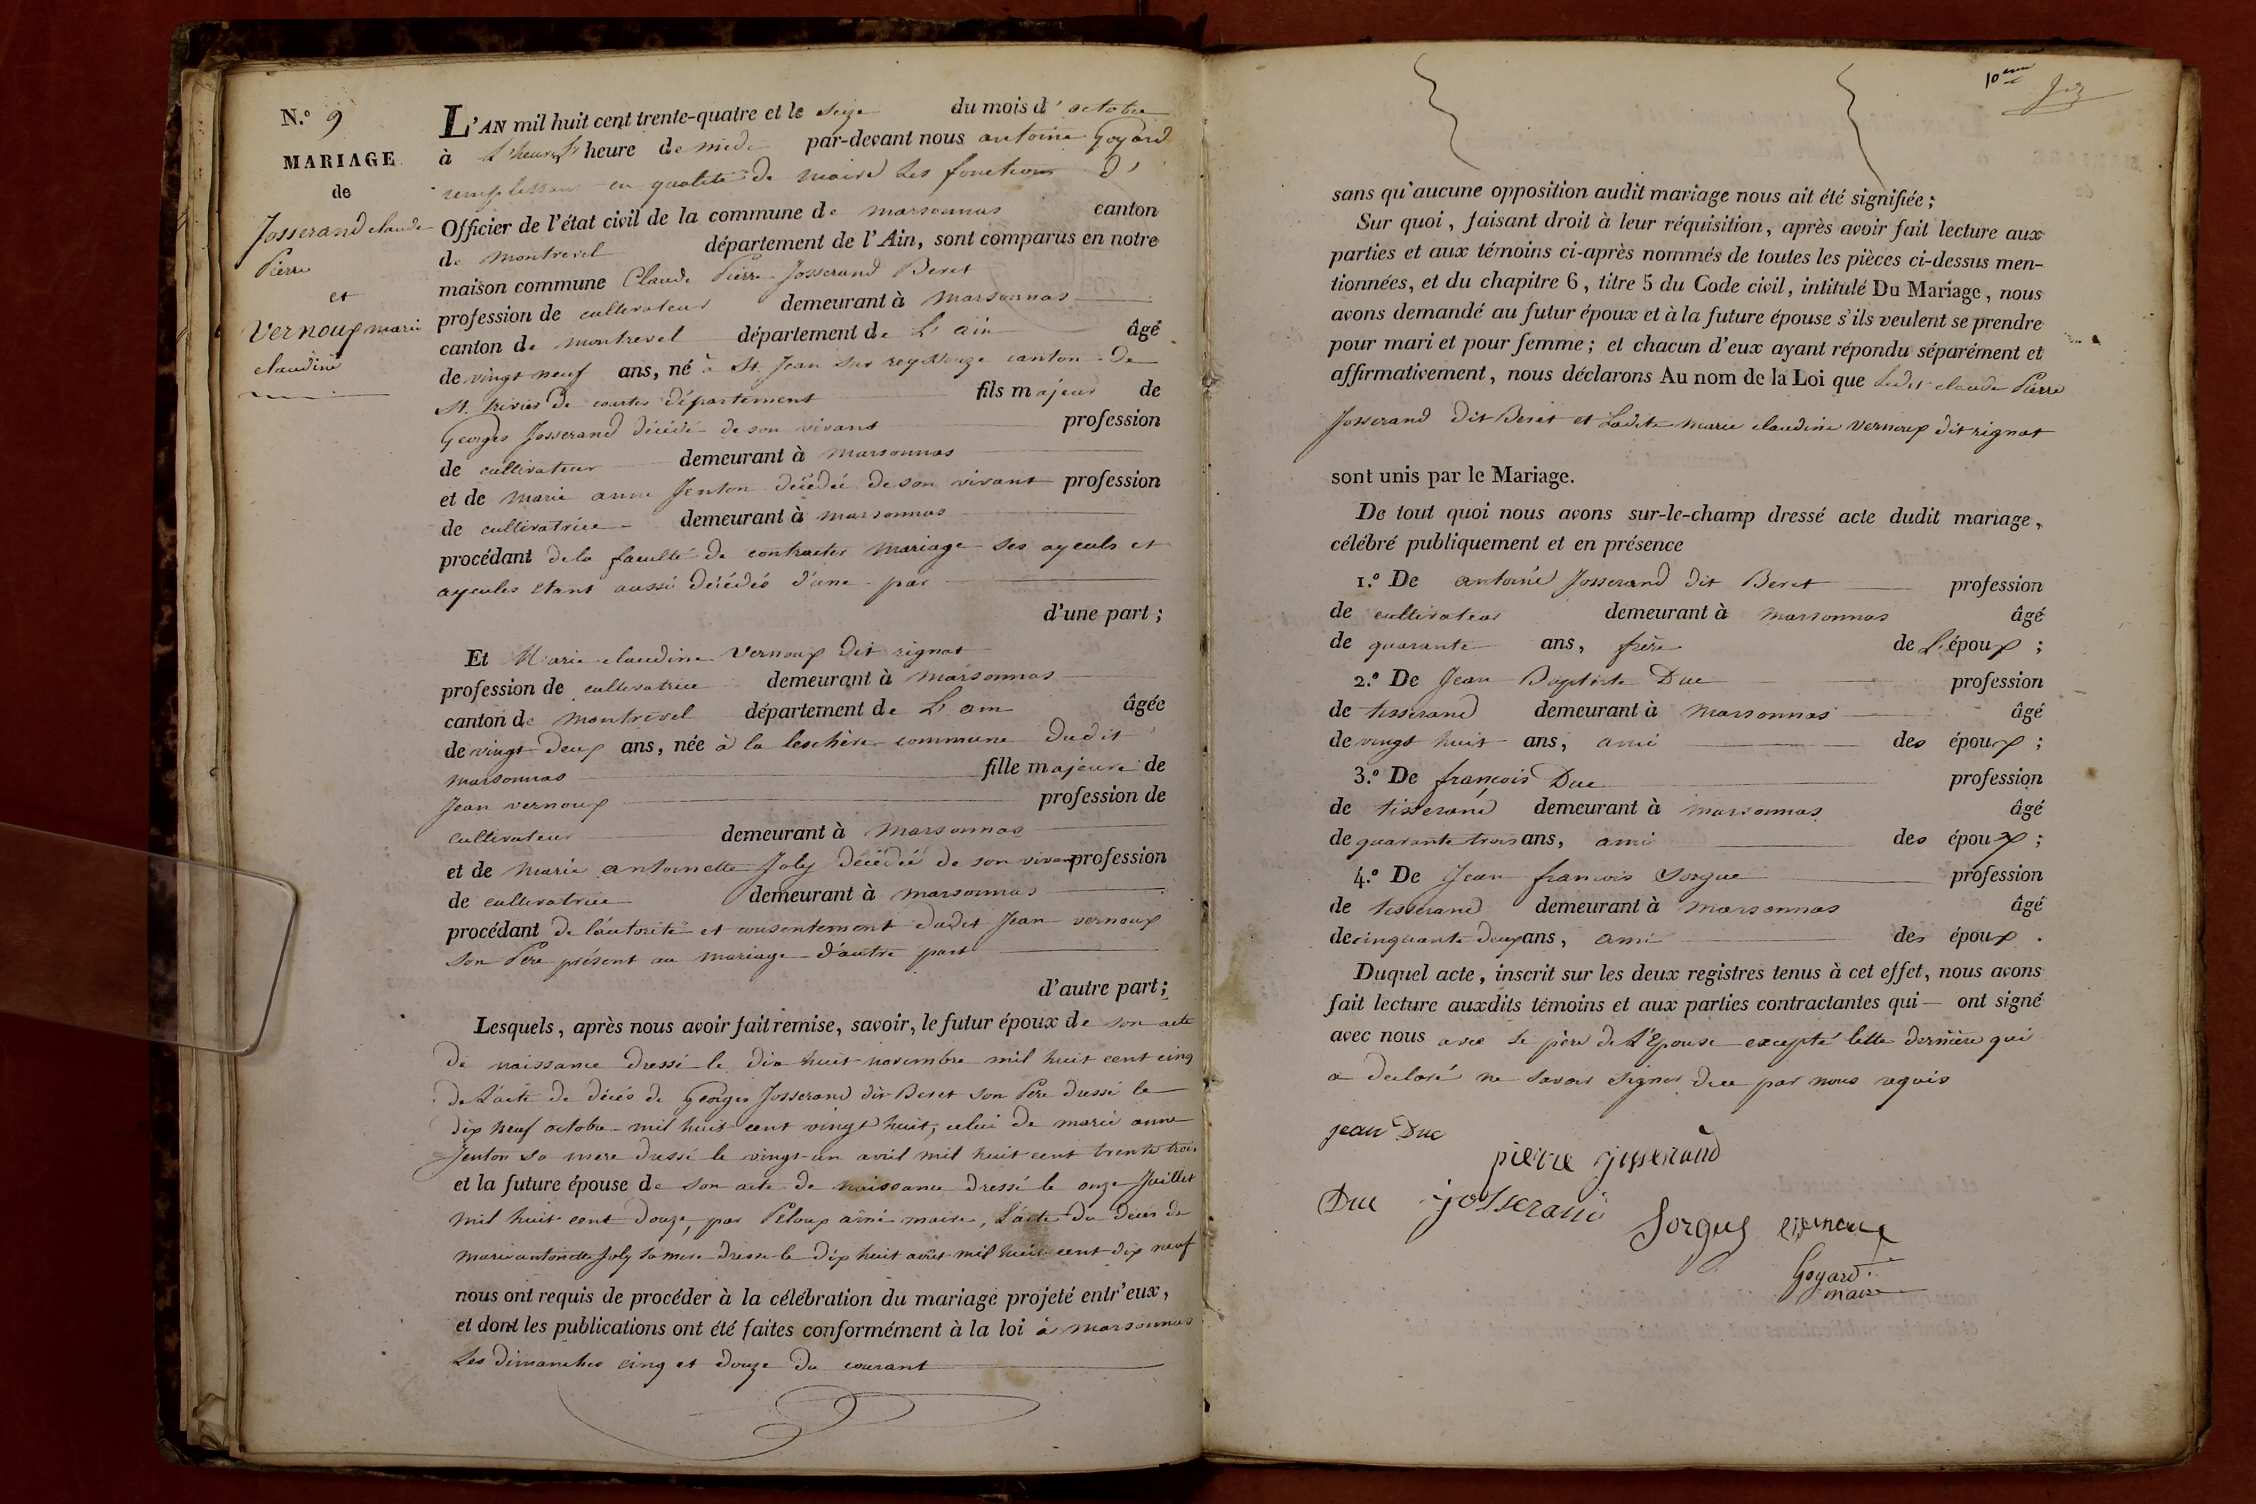 N.º 9
MARIAGE
de
Josserand claude
Pierre
et
Vernoux marie
claudine
L'AN mil huit cent trente-quatre et le seize du mois d'octobre
à heure de midi par-devant nous antoine Goyard
remplissant en qualité de maire les fonctions d'
Officier de l'état civil de la commune de marsonnas canton
de montrevel département de l'Ain, sont comparus en notre
maison commune Claude Pierre Josserand Beret
profession de cultivateur demeurant à marsonnas
canton de montrevel département de L'ain âgé
de vingt neuf ans, né à St. Jean sur reyssouze canton de
St. trivier de courtes département fils majeur de
Georges Josserand décédé de son vivant profession
de cultivateur demeurant à marsonnas
et de marie anne Jenton décédée de son vivant profession
de cultivatrice demeurant à marsonnas
procédant de la faculté de contracter mariage ses ayeuls et
ayeules etant aussi décédés d'une par
d'une part ;
Et Marie claudine Vernoux dit rignat
profession de cultivatrice demeurant à marsonnas
canton de montrevel département de L'ain âgée
de vingt deux ans, née à la leschère commune dudit
marsonnas fille majeure de
Jean vernoux profession de
cultivateur demeurant à marsonnas
et de marie antoinette Joly décédée de son vivant profession
de cultivatrice demeurant à marsonnas
procédant de l'autorité et consentement dudit Jean vernoux
son Père présent au mariage d'autre part
d'autre part ;
Lesquels, après nous avoir fait remise, savoir, le futur époux de son acte
de naissance dressé le dix huit novembre mil huit cent cinq
de L'acte de décés de Georges Josserand dit Beret son Père dressé le
dix neuf octobre mil huit cent vingt huit, celui de marie anne
Jenton sa mere dressé le vingt un avril mil huit cent trente trois
et la future épouse de son acte de naissance dressé le onze Juillet
mil huit cent douze, par Peloux ainé maire, L'acte du décés de
marie antoinette Joly sa mere dressé le dix huit août mil huit cent dix neuf
nous ont requis de procéder à la célébration du mariage projeté entr'eux,
et dont les publications ont été faites conformément à la loi à marsonnas
Les dimanches cinq et douze du courant
10eme
sans qu'aucune opposition audit mariage nous ait été signifiée ;
Sur quoi, faisant droit à leur réquisition, après avoir fait lecture aux
parties et aux témoins ci-après nommés de toutes les pièces ci-dessus men-
tionnées, et du chapitre 6, titre 5 du Code civil, intitulé Du Mariage, nous
avons demandé au futur époux et à la future épouse s'ils veulent se prendre
pour mari et pour femme ; et chacun d'eux ayant répondu séparément et
affirmativement, nous déclarons Au nom de la Loi que Ledit claude Pierre
Josserand dit Beret et Ladite marie claudine vernoux dit rignat
sont unis par le Mariage.
De tout quoi nous avons sur-le-champ dressé acte dudit mariage,
célébré publiquement et en présence
1.º De antoine Josserand dit Beret profession
de cultivateur demeurant à marsonnas âgé
de quarante ans, frère de L'époux ;
2.º De Jean Baptiste Duc profession
de tisserand demeurant à marsonnas âgé
de vingt huit ans, ami des époux ;
3.º De françois Duc profession
de tisserand demeurant à marsonnas âgé
de quarante trois ans, ami des époux ;
4.º De Jean francois Sorgue profession
de tisserand demeurant à marsonnas âgé
de cinquante deux ans, ami des époux .
Duquel acte, inscrit sur les deux registres tenus à cet effet, nous avons
fait lecture auxdits témoins et aux parties contractantes qui — ont signé
avec nous avec le père de L'Epouse excepté cette dernière qui
a declaré ne savoir signer de ce par nous requis
jean Duc
pierre josserand
Duc josserand
Sorgue vernoux
Goyard
maire